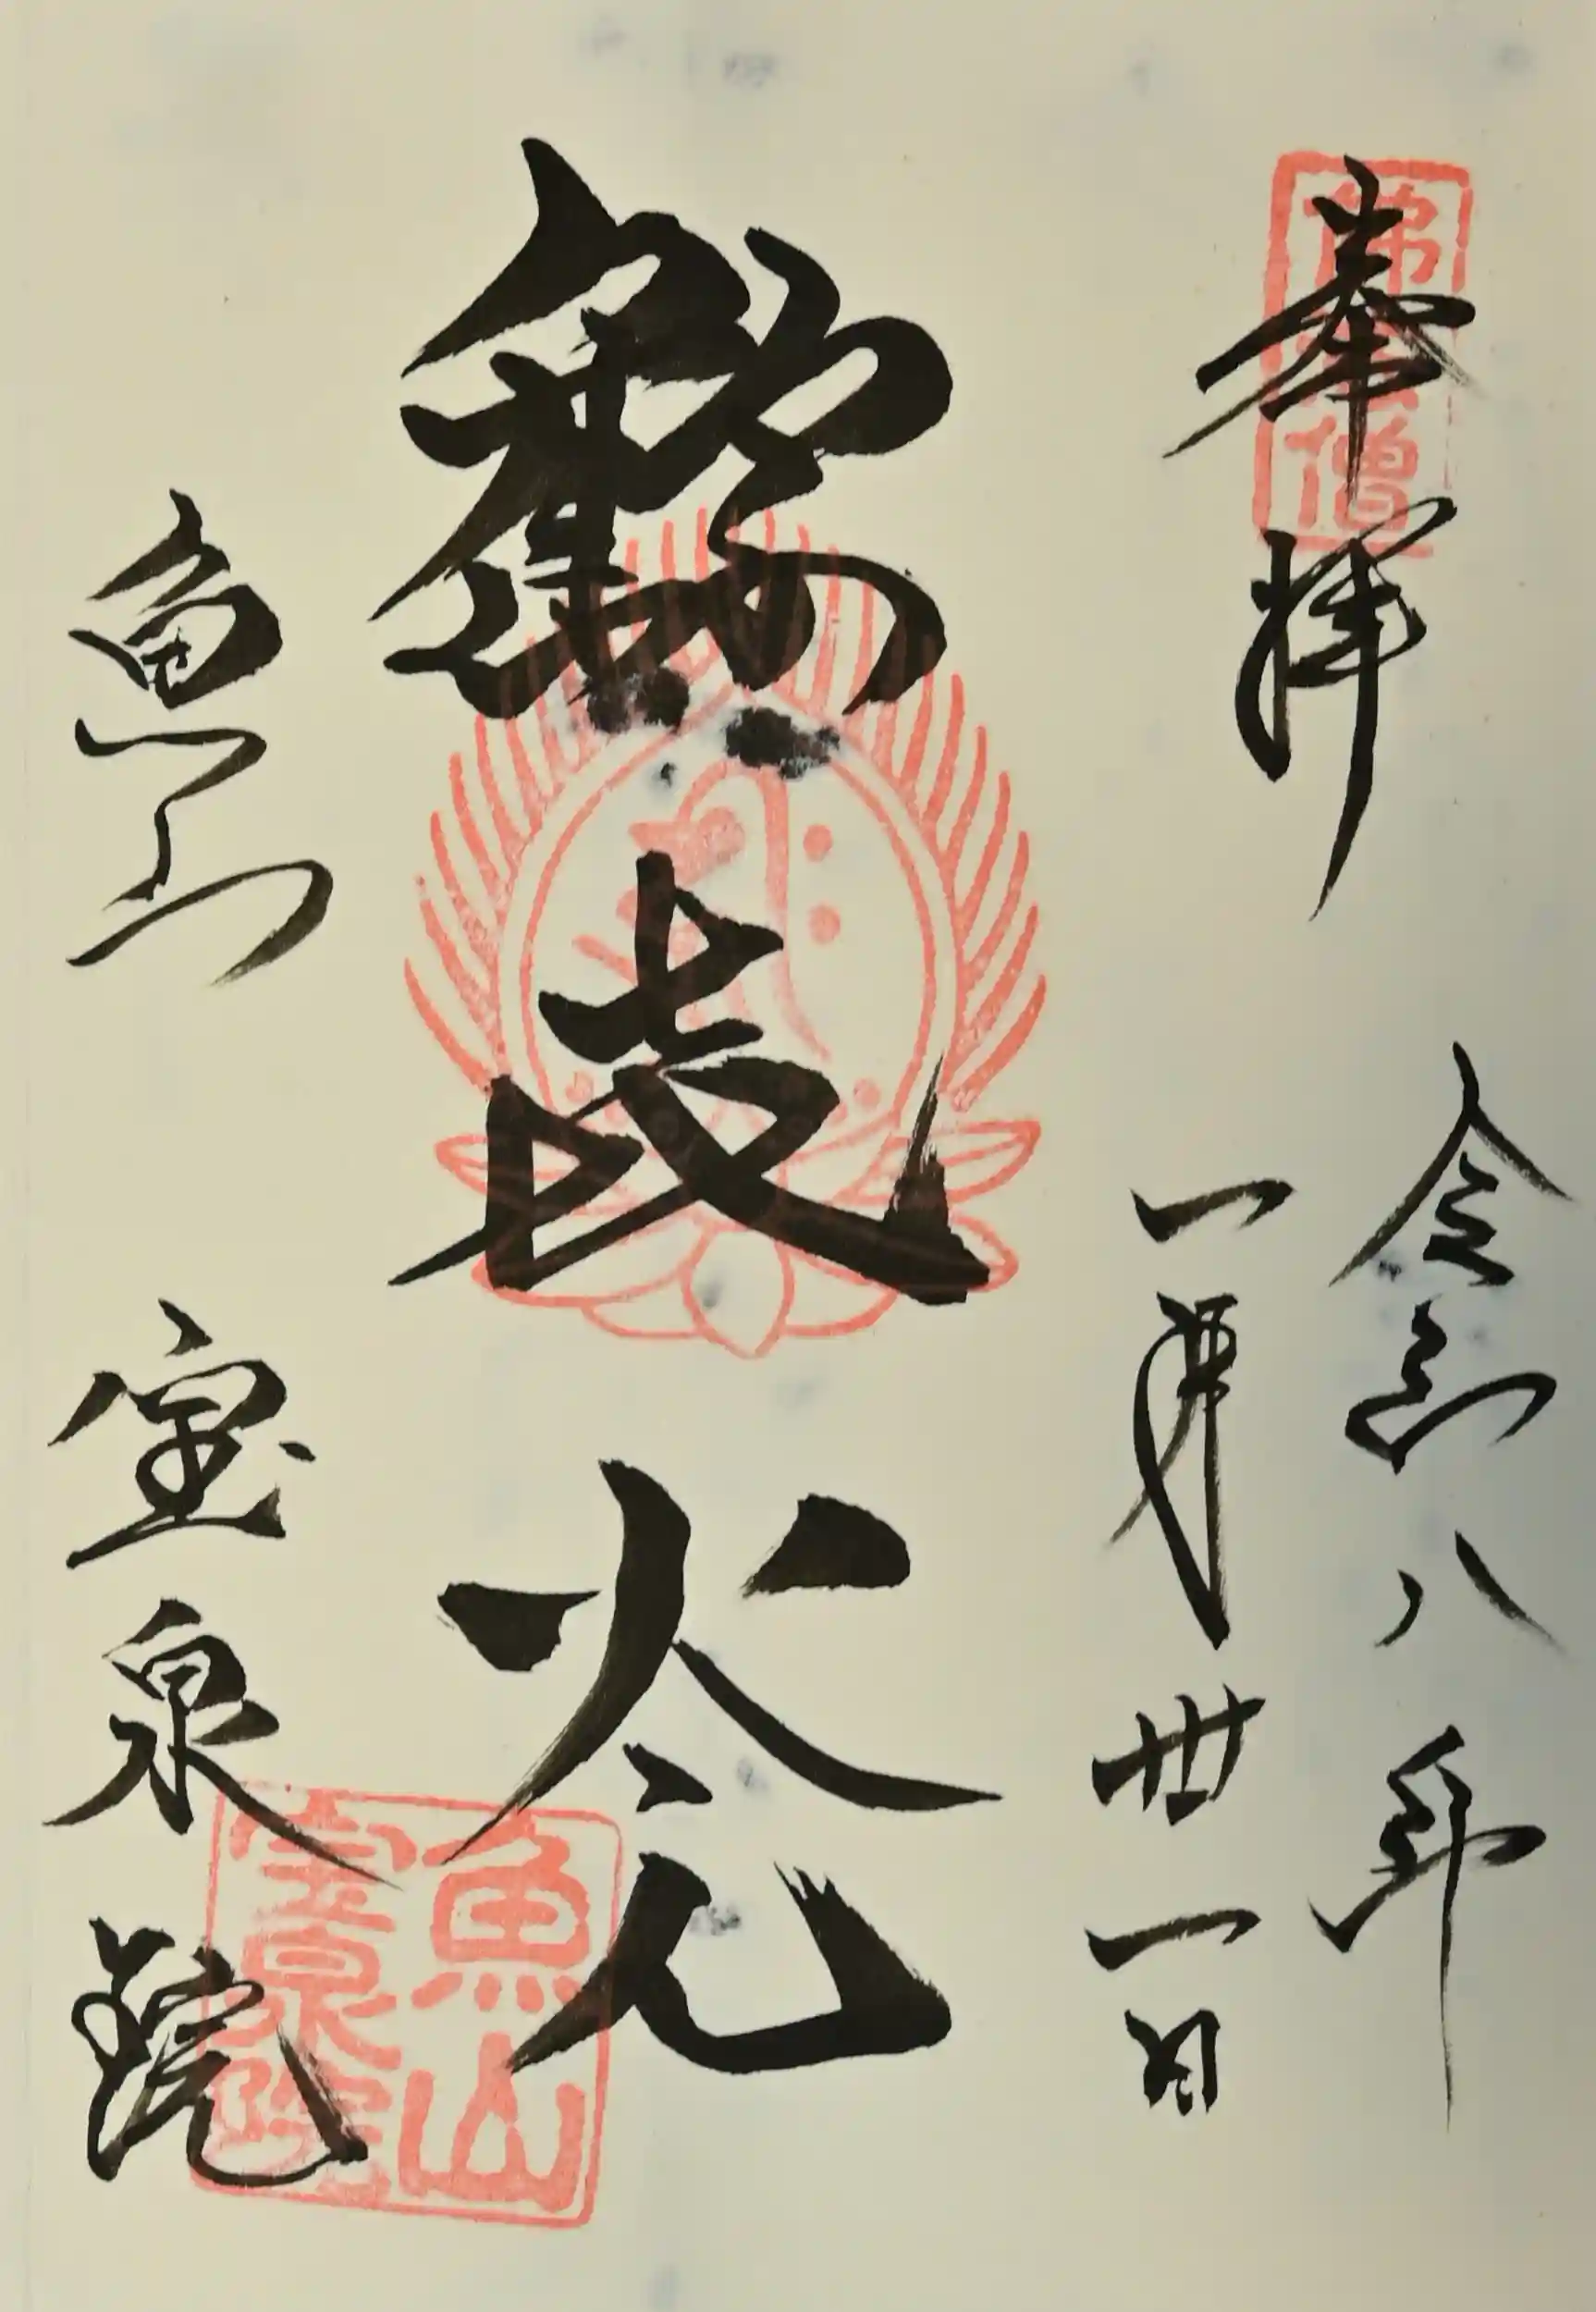 奉拝
令和八年
一月卅一日
光
魚山 宝泉院
佛法僧
魚山
宝泉院